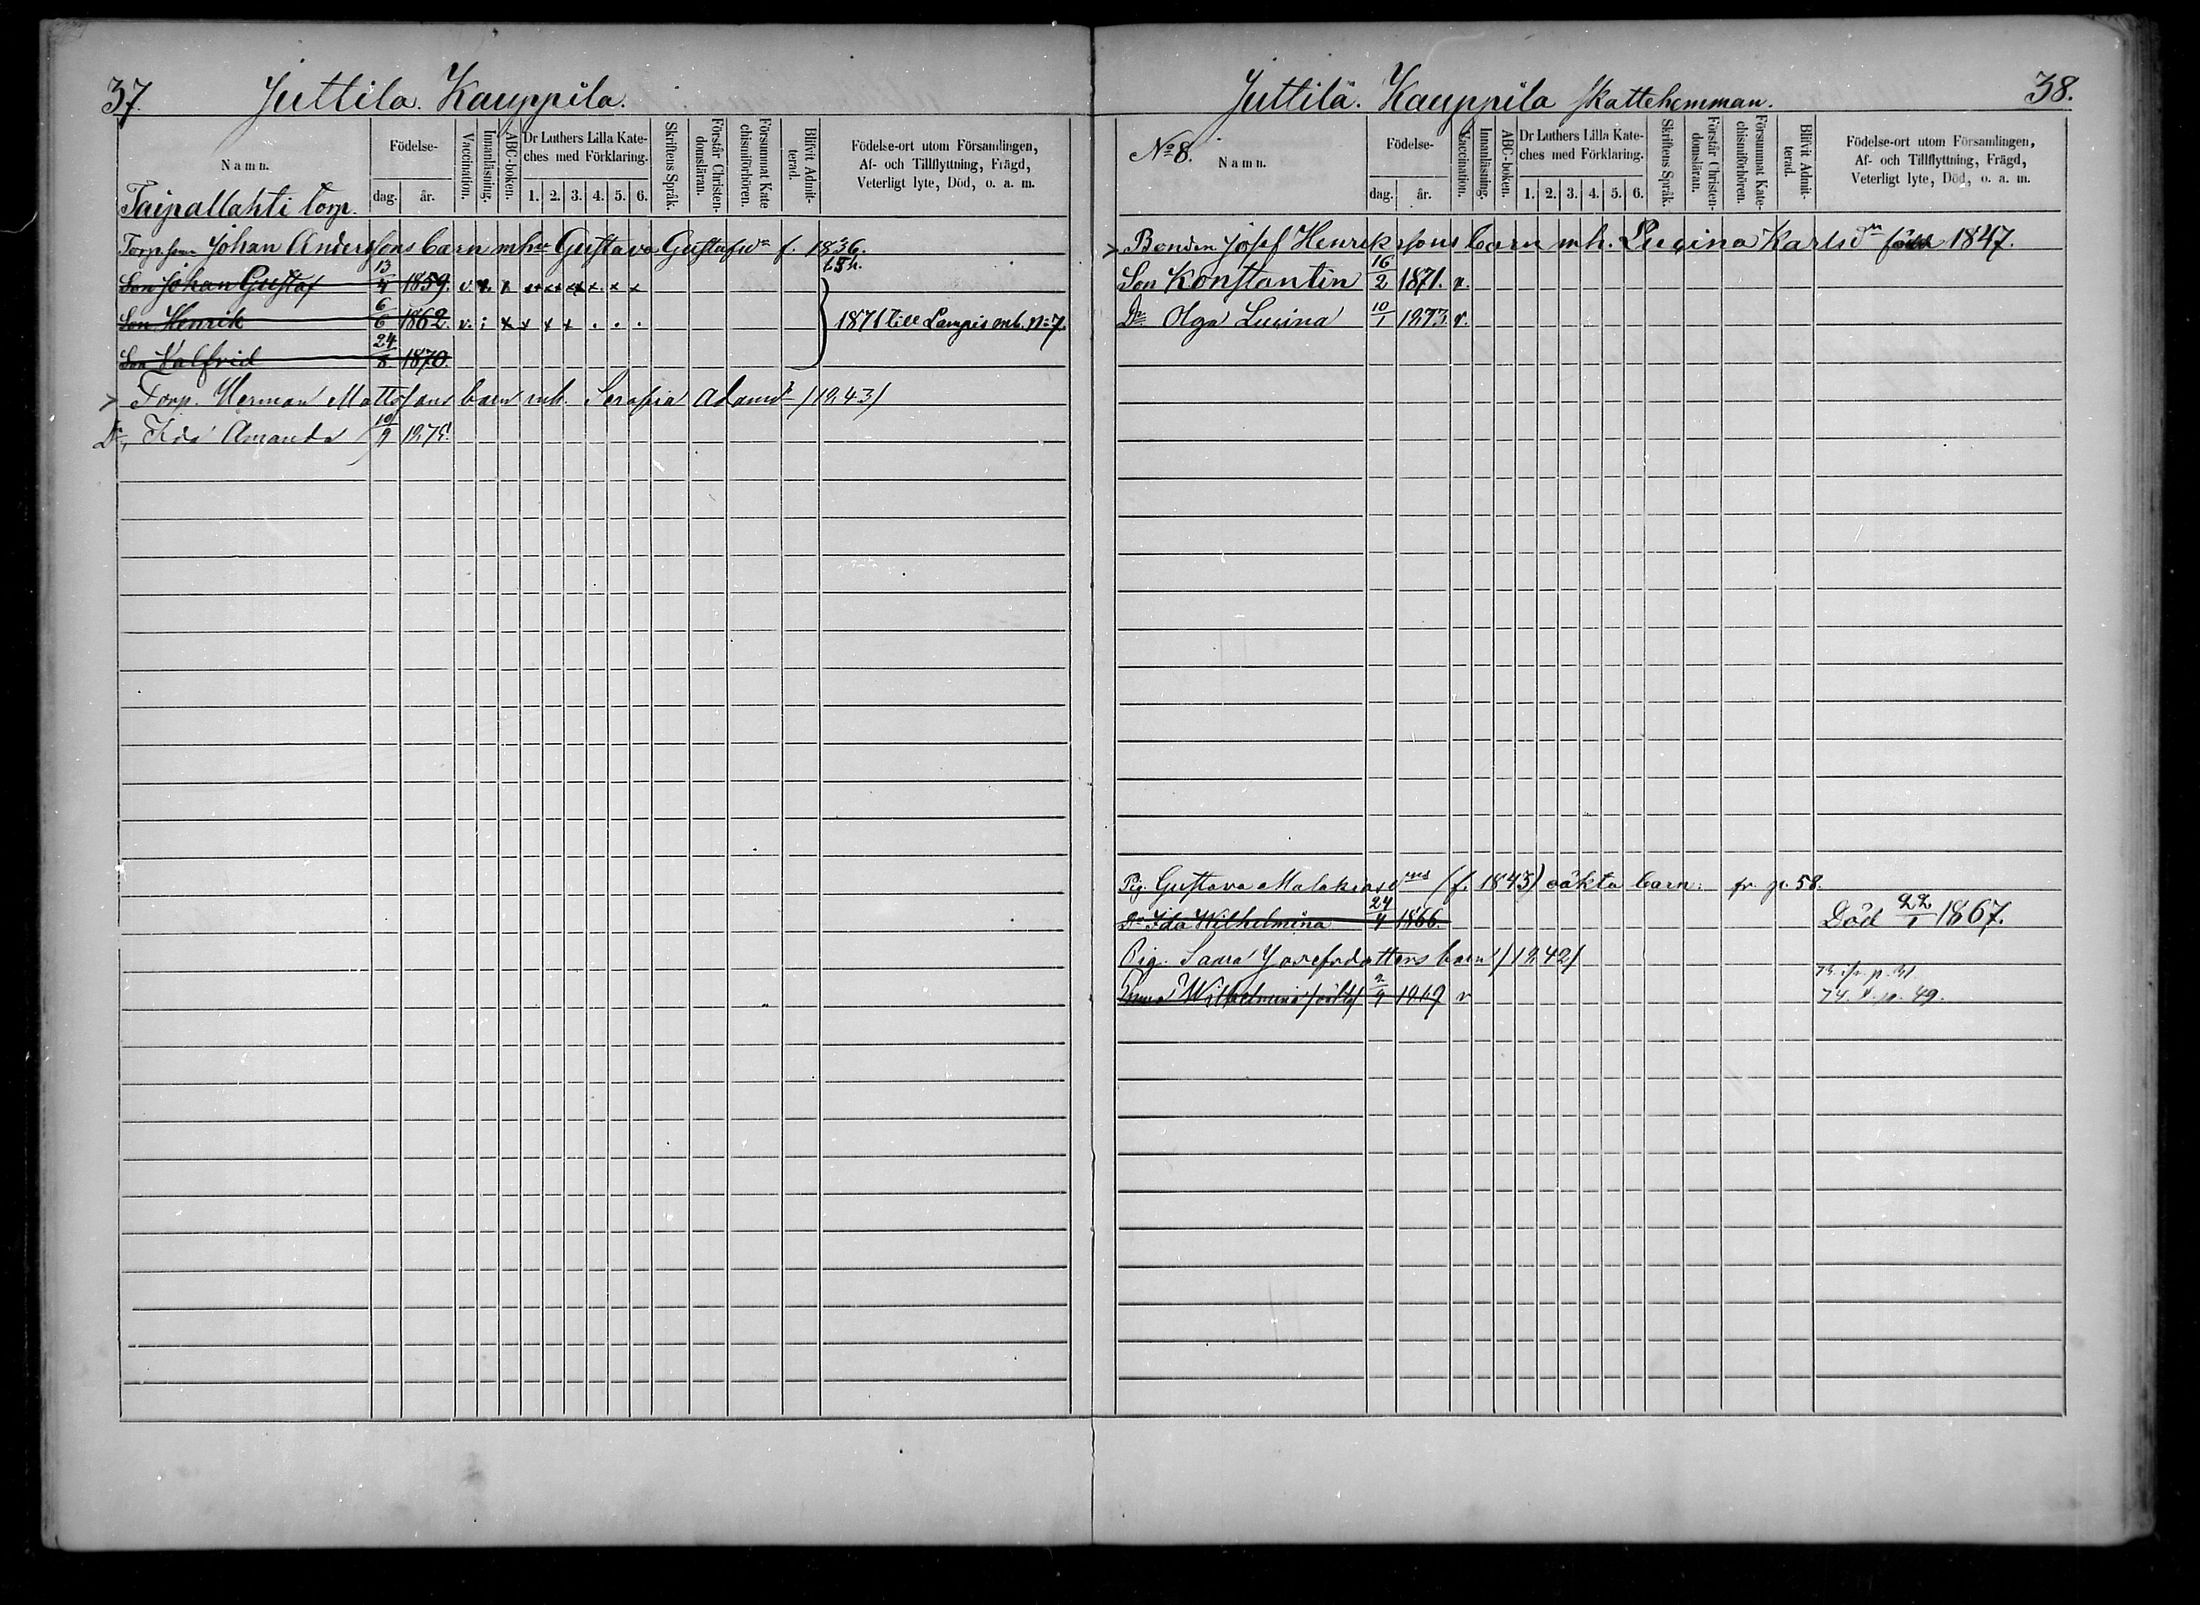 37. Juttila. Kauppila.
Namn.
Födelse-
dag. år.
Vaccination.
Innanläsning.
ABC-boken.
Dr Luthers Lilla Kate-
ches med Förklaring.
1. 2. 3. 4. 5. 6.
Skriftens Språk.
Förstår Christen-
domsläran.
Försummat Kate
chismiförhören.
Blifvit Admit-
terad.
Födelse-ort utom Församlingen,
Af- och Tillflyttning, Frägd,
Veterligt lyte, Död, o. a. m.
Taipallahti torp.
Johan Anderssons barn mhu Gustava Gustafsdr f. 1836.
Son Johan Gustaf 13/4 1859. v.
Son Henrik 6/6 1862. v. i x x x x . . .
1871 till Lampis No 7.
Son Kalfrid 24/8 1870.
Torp. Herman Mattssons barn mh. Serafia Adamsd (1843)
Dr, Ida Amanda 10/9 1875.
Juttila. Kauppila skattehemman. 38.
No 8.
Namn.
Födelse-
dag. år.
Vaccination.
Innanläsning.
ABC-boken.
Dr Luthers Lilla Kate-
ches med Förklaring.
1. 2. 3. 4. 5. 6.
Skriftens Språk.
Förstår Christen-
domsläran.
Försummat Kate-
chismiförhören.
Blifvit Admit-
terad.
Födelse-ort utom Församlingen,
Af- och Tillflyttning, Frägd,
Veterligt lyte, Död, o. a. m.
Bonden Josef Henrikssons barn mh. Lucina Karlsdn född 1847.
Son Konstantin 16/2 1871. v.
Dr Olga Lucina 10/1 1873. v.
Pig. Gustava Malakiasdrs (f. 1843) oäkta barn. fr. p. 58.
Dr Ida Wilhelmina 24/4 1866. Död 22/1 1867.
Pig. Sanna Josefsdotters barn (1842)
Wilhelmina (oäkta) 2/9 1869 v
73. fr. p. 31.
74. t. p. 49.